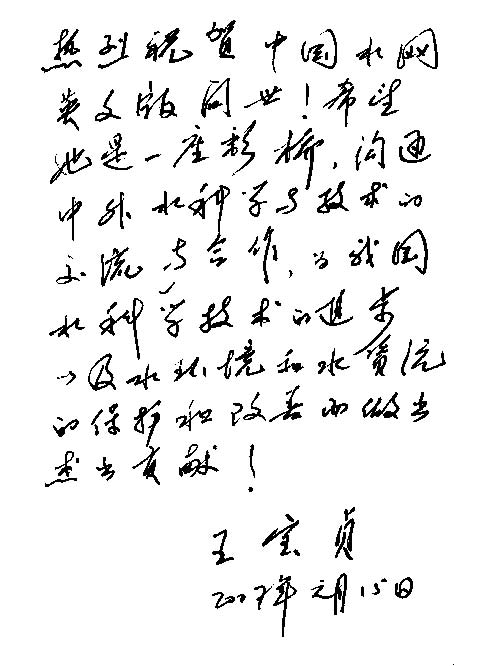 热烈祝贺中国水网
英文版问世！希望
她是一座彩桥，沟通
中外水科学与技术的
交流与合作，为我国
水科学技术的进步
以及水环境和水资源
的保护和改善而做出
杰出贡献！
王宝贞
2007年元月15日